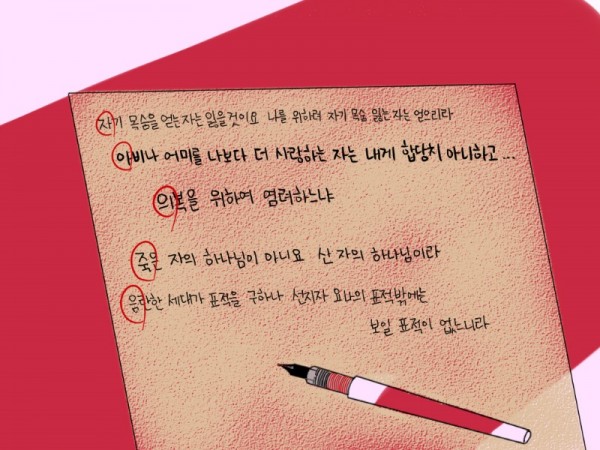 자기 목숨을 얻는자는 잃을것이요 나를 위하여 자기 목숨 잃는자는 얻으리라
아비나 어미를 나보다 더 사랑하는 자는 내게 합당치 아니하고 ...
의복을 위하여 염려하느냐
죽은 자의 하나님이 아니요 산 자의 하나님이라
음란한 세대가 표적을 구하나 선지자 요나의 표적밖에는
보일 표적이 없느니라